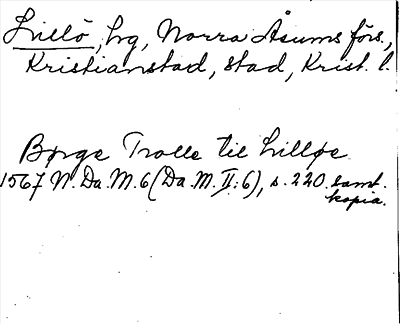 Lillö, hg, Norra Åsums förs.,
Kristianstad, stad, Krist. l.
Børge Trolle til Lilløe
1567 N. Da. M. 6 (Da. M. II: 6), s. 220. samt.
kopia.